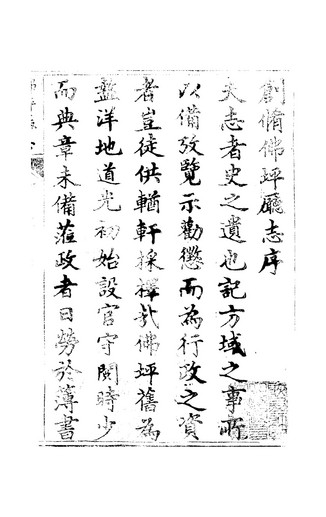 創脩佛坪廳志序
夫志者史之遺也記方域之事所
以備攷覽示勸懲而為行政之資
者豈徒供輶軒採擇哉佛坪舊為
盩洋地道光初始設官守閱時少
而典章未備蒞政者日勞於薄書